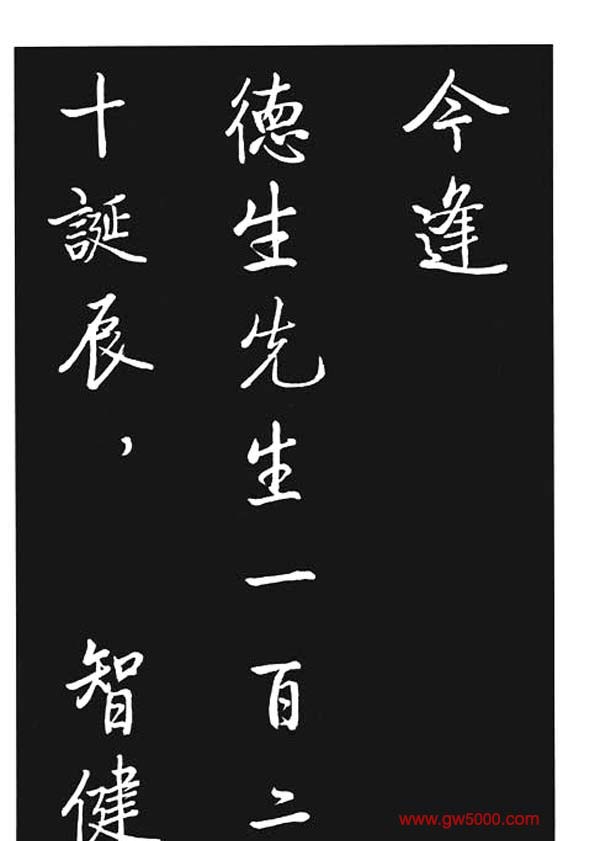 今逢
德生先生一百二
十誕辰，智健
www.gw5000.com